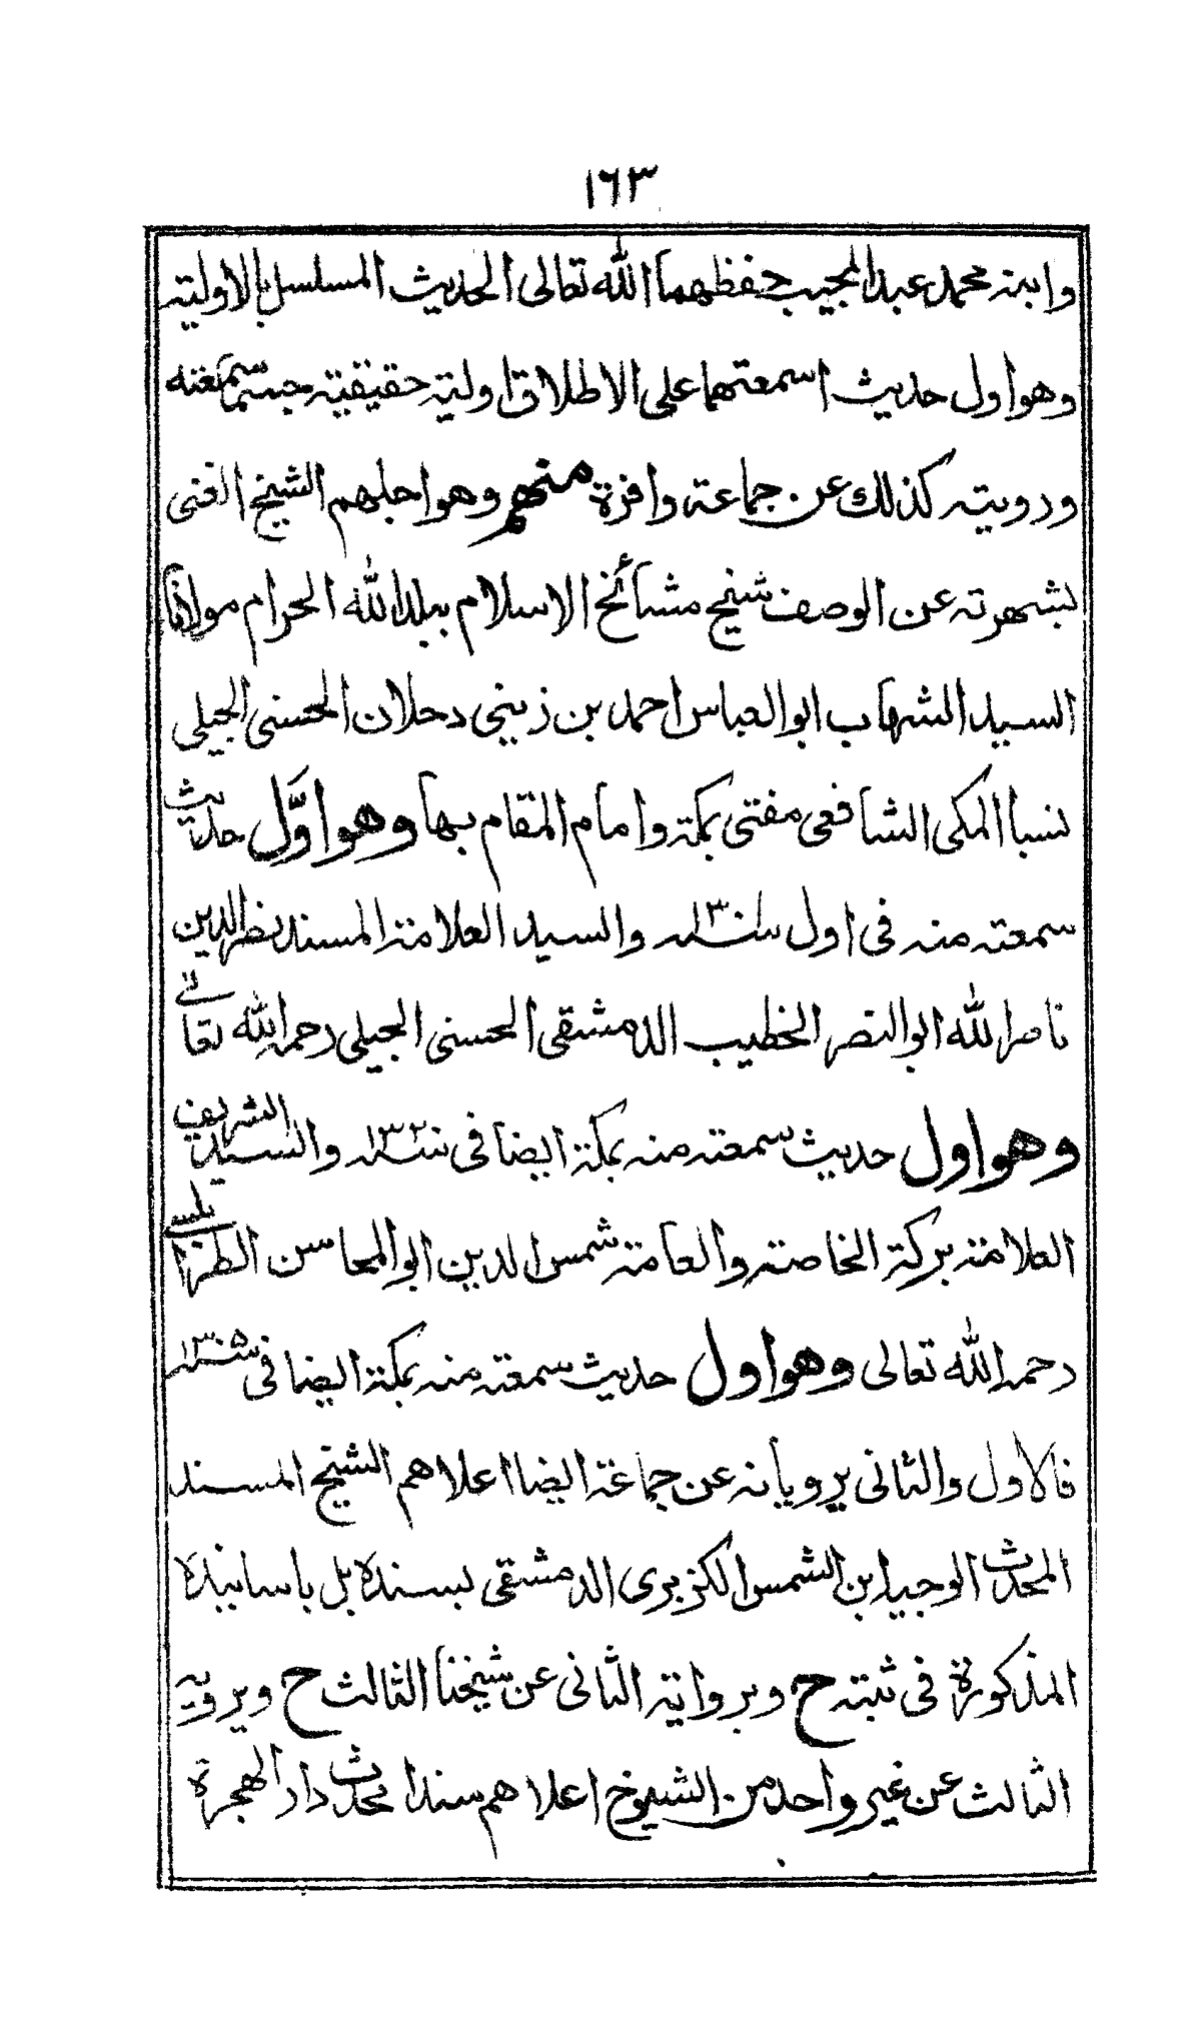 ١٦٣
وابنه محمد عبد المجيب حفظهما الله تعالى الحديث المسلسل بالاولية
وهو اول حديث اسمعتهما على الاطلاق اولية حقيقية حسبما سمعته
ورويته كذلك عن جماعة وافرة منهم وهو اجلهم الشيخ الغنى
بشهرته عن الوصف شيخ مشائخ الاسلام ببلد الله الحرام مولانا
السيد الشهاب ابو العباس احمد بن زينى دحلان الحسنى الجيلى
نسبا المكى الشافعى مفتى بمكة وامام المقام بها وهو اوَّل حديث
سمعته منه فى اول سنه ١٣٠١ والسيد العلامة المسند نصر الدين
ناصر الله ابو النصر الخطيب الدمشقى الحسنى الجيلى رحمه الله تعالى
وهو اول حديث سمعته منه بمكة ايضا فى سنه ١٣٠٢ والسيد الشريف
العلامة بركة الخاصة والعامة شمس الدين ابو المحاسن الطرابلسى
رحمه الله تعالى وهو اول حديث سمعته منه بمكة ايضا فى سنه ١٣٠٥
فالاول والثانى يرويانه عن جماعة ايضا اعلاهم الشيخ المسند
المحدث الوجيه ابن الشمس الكزبرى الدمشقى بسنده بل باسانيده
المذكورة فى ثبته ح وبرواية الثانى عن شيخنا الثالث ح ويرويه
الثالث عن غير واحد من الشيوخ اعلاهم سندا محدث دار الهجرة